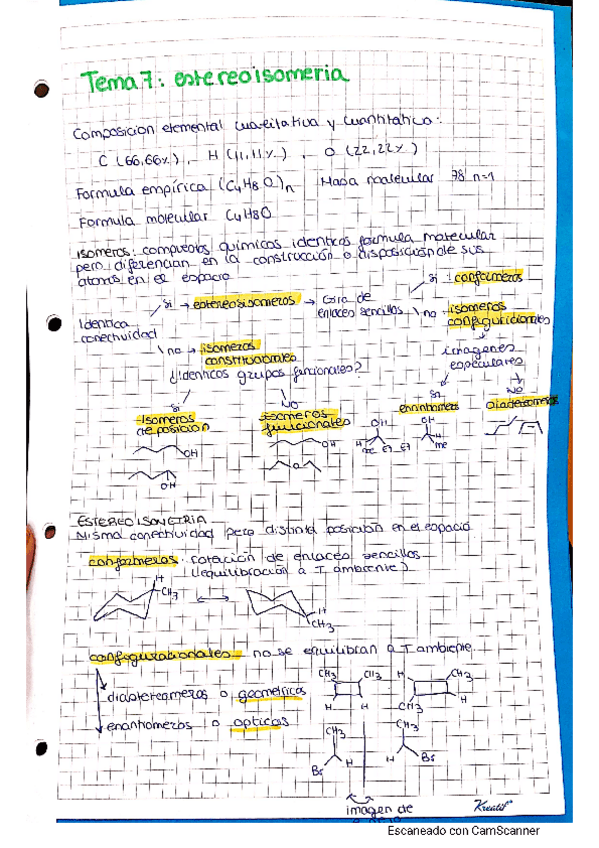 Tema 7: estereoisomeria
Composicion elemental cualilativa y cuantitativa:
C (66,66%), H (11,11%), O (22,22%)
Formula empírica (C4H8O)n Masa molecular 78 n=1
Formula molecular C4H8O
isomeros: compuestos químicos identicos formula molecular
pero diferencian en la construcción o disposición de sus
atomos en el espacio
si: conformeros
si → estereoisomeros → Giro de
enlaces sencillos
no: isomeros
configuracionales
Identica
conectividad
no → isomeros
constitucionales
imagenes
especulares
¿Identicos grupos funcionales?
si
No
Si
No
Isomeros
de posicion
isomeros
funcionales
enantiomeros
diastereomeros
OH
OH
O
OH
H
me
Et
Et
OH
H
me
ESTEREOISOMETRIA
Misma conectividad pero distinta posicion en el espacio
conformeros: rotación de enlaces sencillos
(equilibración a T ambiente)
H
CH3
H
CH3
configuracionales no se equilibran a T ambiente.
diastereomeros o geometricos
enantiomeros o opticos
CH3
CH3
H
CH3
H
H
CH3
H
CH3
CH3
Br
H
H
Br
imagen de
Kreatif
Escaneado con CamScanner